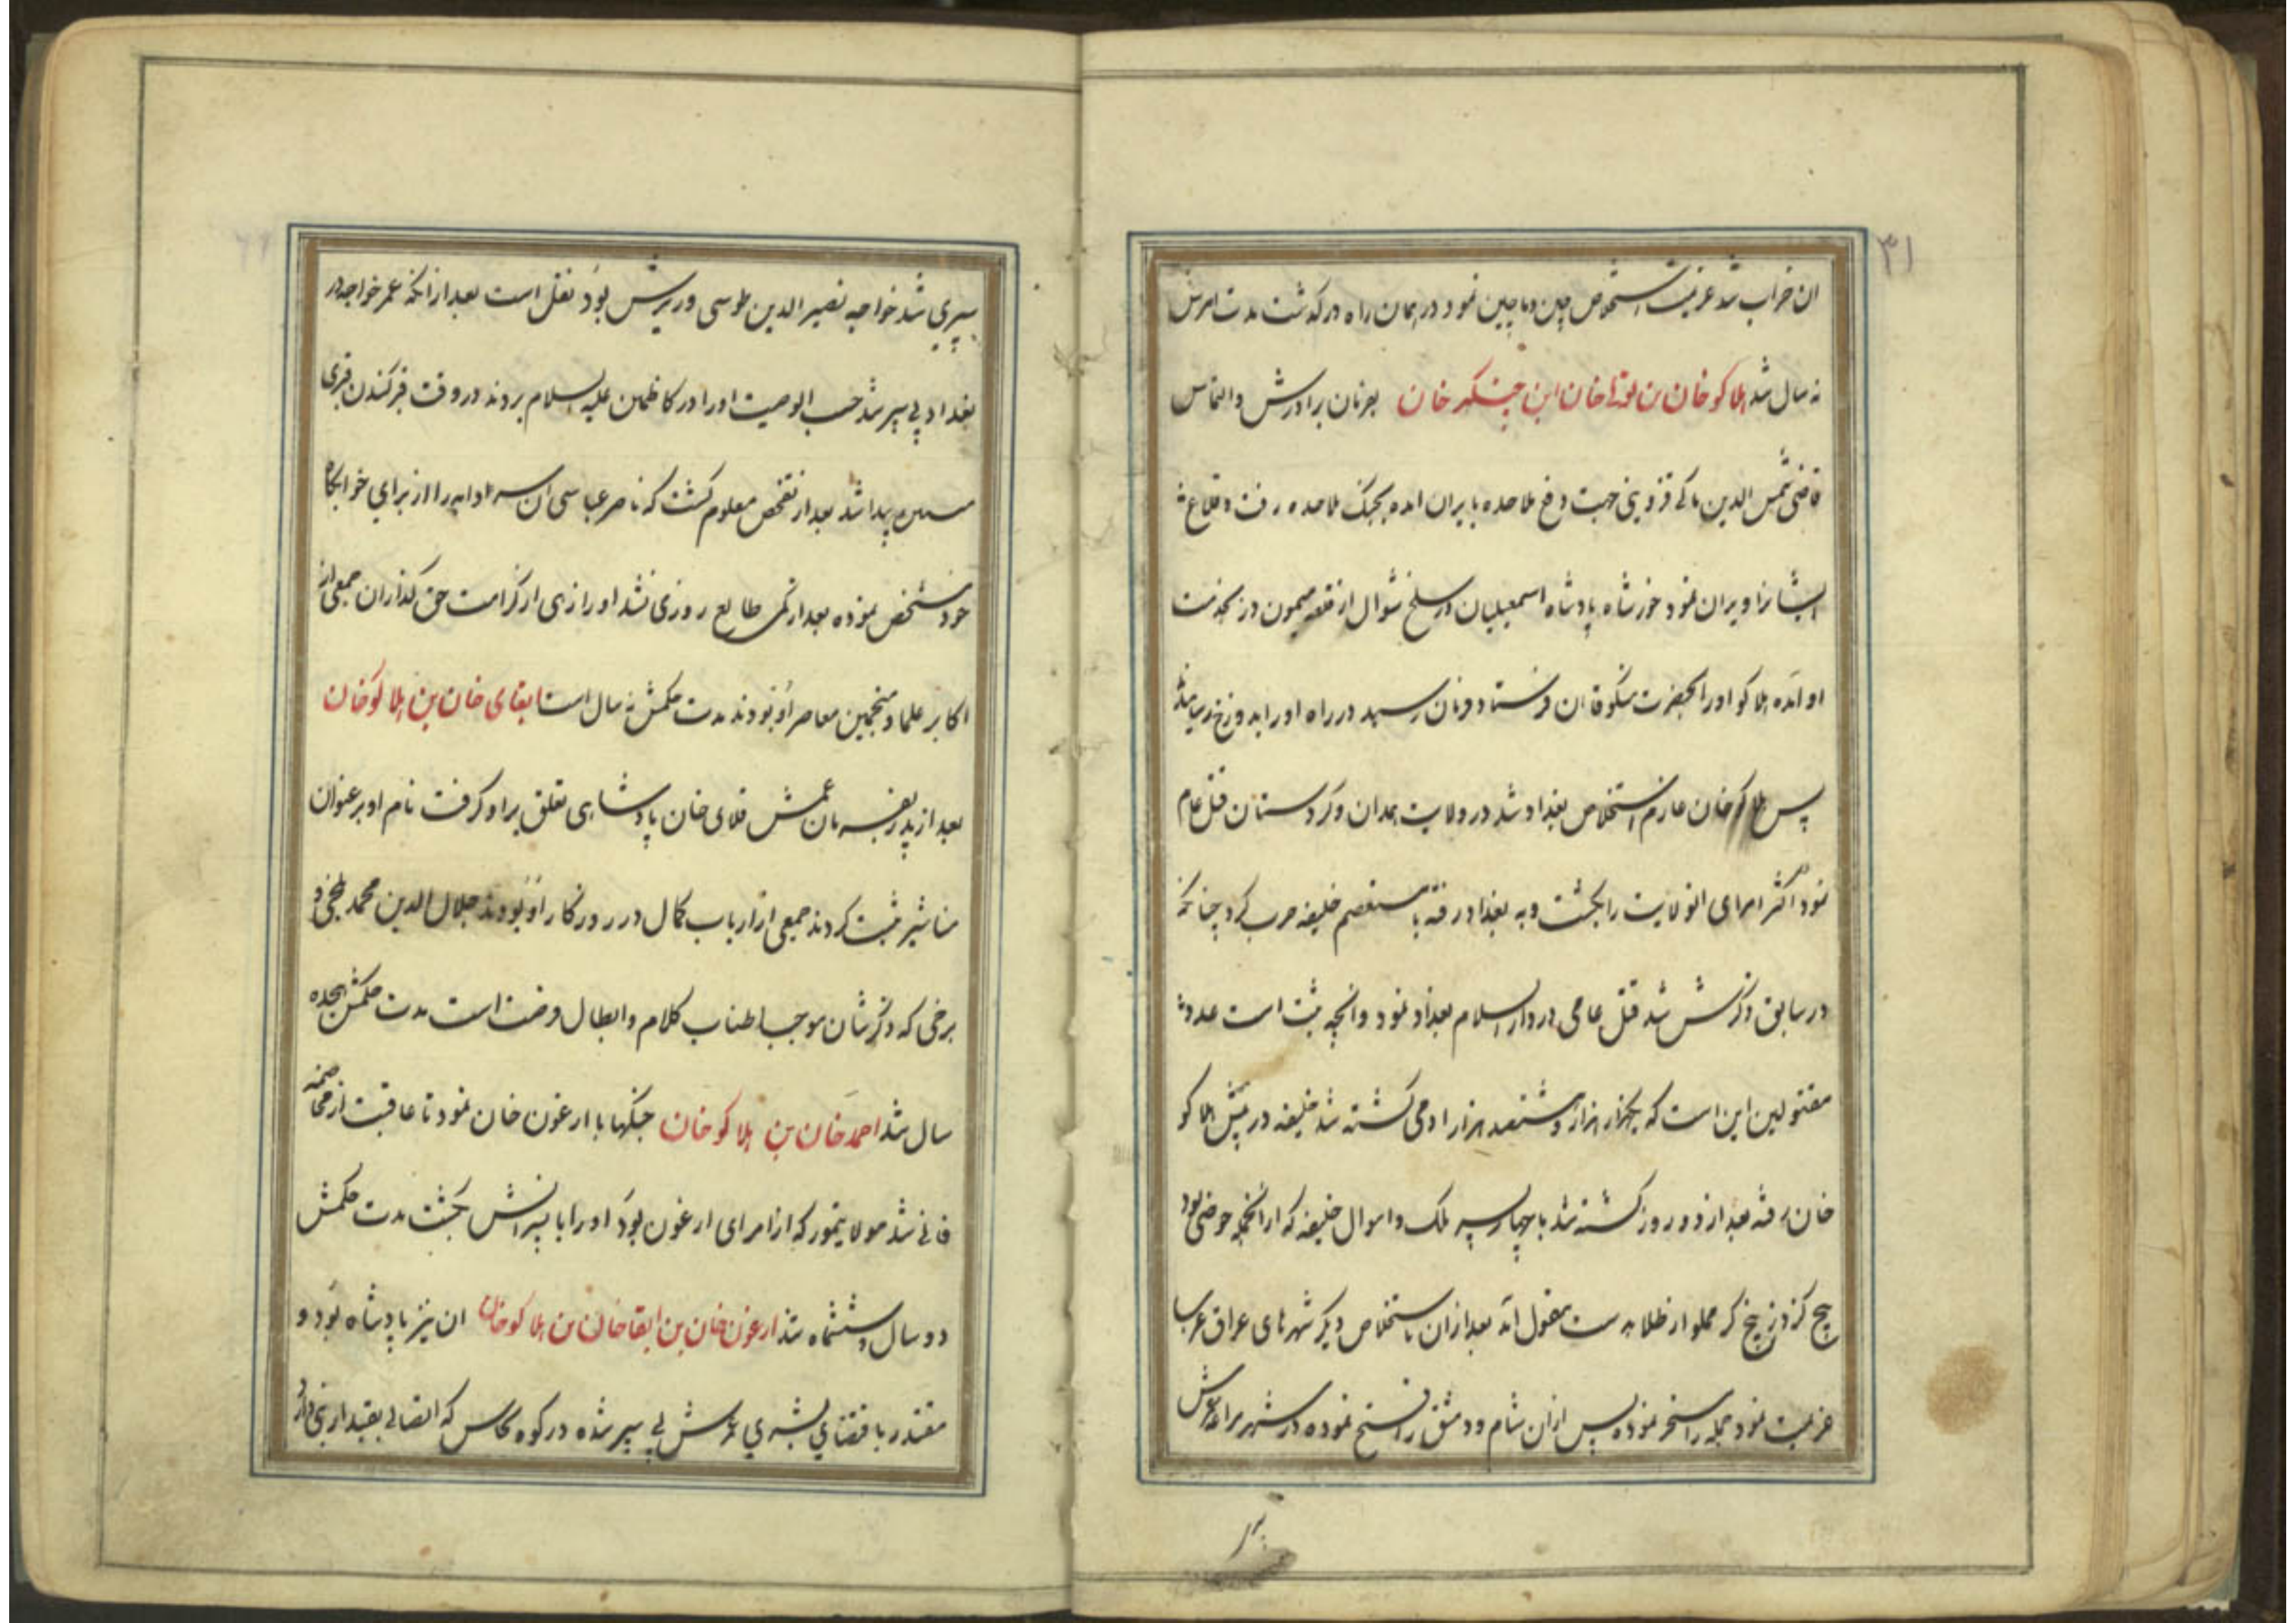 ۳۱
ان خراب شد عزیمت استخلاص چین و ماچین نمود در همان راه درکذشت مدت امرش
نه سال شد هلاکوخان بن تولیخان ابن چنکیز خان بفرمان برادرش و التماس
قاضی شمس الدین ماکی قزوینی جهت دفع ملاحده بایران امده بجنک ملاحده رفت و قلاع
ایشانرا ویران نمود خورشاه پادشاه اسمعیلیان در سلخ شوال از قلعه میمون دز بخدمت
او آمده هلاکو اورا بحضرت منکوقاان فرستاد فرمان رسید در راه اورا بدوزخ رسانیدند
پس هلاکوخان عازم استخلاص بغداد شد در ولایت همدان و کردستان قتل عام
نمود اکثر امرای انولایت را بکشت و به بغداد رفته با مستعصم خلیفه حرب کرد چنانکه
در سابق ذکرش شد قتل عامی در دار السلام بغداد نمود و انچه ثبت است عدد
مقتولین این است که یکهزار هزار و ششصد هزار ادمی کشته شد خلیفه در پیش هلاکو
خان رفته بعد از دو روز کشته شد با چهار پسر ملک و اموال خلیفه که از انجمله حوضی بود
پنج کز در پنج کز مملو از طلا بدست مغول آمد بعد از ان باستخلاص دیکر شهرهای عراق عرب
عزیمت نمود جمله را مسخر نموده پس از ان شام و دمشق را فتح نموده در شهر مراغه عمرش
سپری شد خواجه نصیر الدین طوسی وزیرش بود نقل است بعد از انکه عمر خواجه در
بغداد پی سپر شد حسب الوصیت اورا در کاظمین علیه السلام بردند در وقت قبر کندن قبری
پیدا شد بعد از تفحص معلوم کشت که ناصر عباسی ان را از برای خوابکاه
خود مشخص نموده بعد از کمی طالع روزی نشد اورا زهی از کرامت حق کذاران جمعی از
اکابر علما و منجمین معاصر او بودند مدت حکمش نه سال است ابقای خان بن هلاکوخان
بعد از پدر بفرمان عمش قلای خان پادشاهی تعلق براو کرفت نام او بر عنوان
مناشیر ثبت کردند جمعی از ارباب کمال در روزکار او بودند جلال الدین محمد بلخی و
برخی که ذکرشان موجب اطناب کلام و ابطال فرصت است مدت حکمش هجده
سال شد احمد خان بن هلاکو خان جنکها با ارغون خان نمود تا عاقبت از مخاصمه
فانی شد مولا تیمور که از امرای ارغون بود اورا با پسرانش بکشت مدت حکمش
دو سال و ششماه شد ارغون خان بن ابقا خان بن هلاکو خان ان نیز پادشاه بود و
مقتدر باقتضای بشری عمرش پی سپر شده در کوه سجاس که اتصالی بقیدار نبی دارد